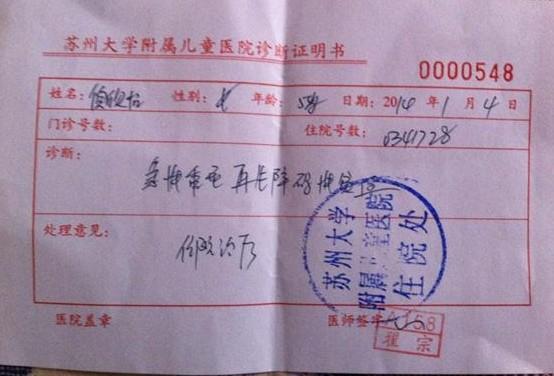 苏州大学附属儿童医院诊断证明书
0000548
姓名： 性别：女 年龄：5岁 日期：2014年1月4日
门诊号数： 住院号数：0341728
诊断：
急性重型再生障碍性贫血
处理意见：
住院治疗
苏州大学
附属儿童医院
住院处
医院盖章 医师签字
翟宗